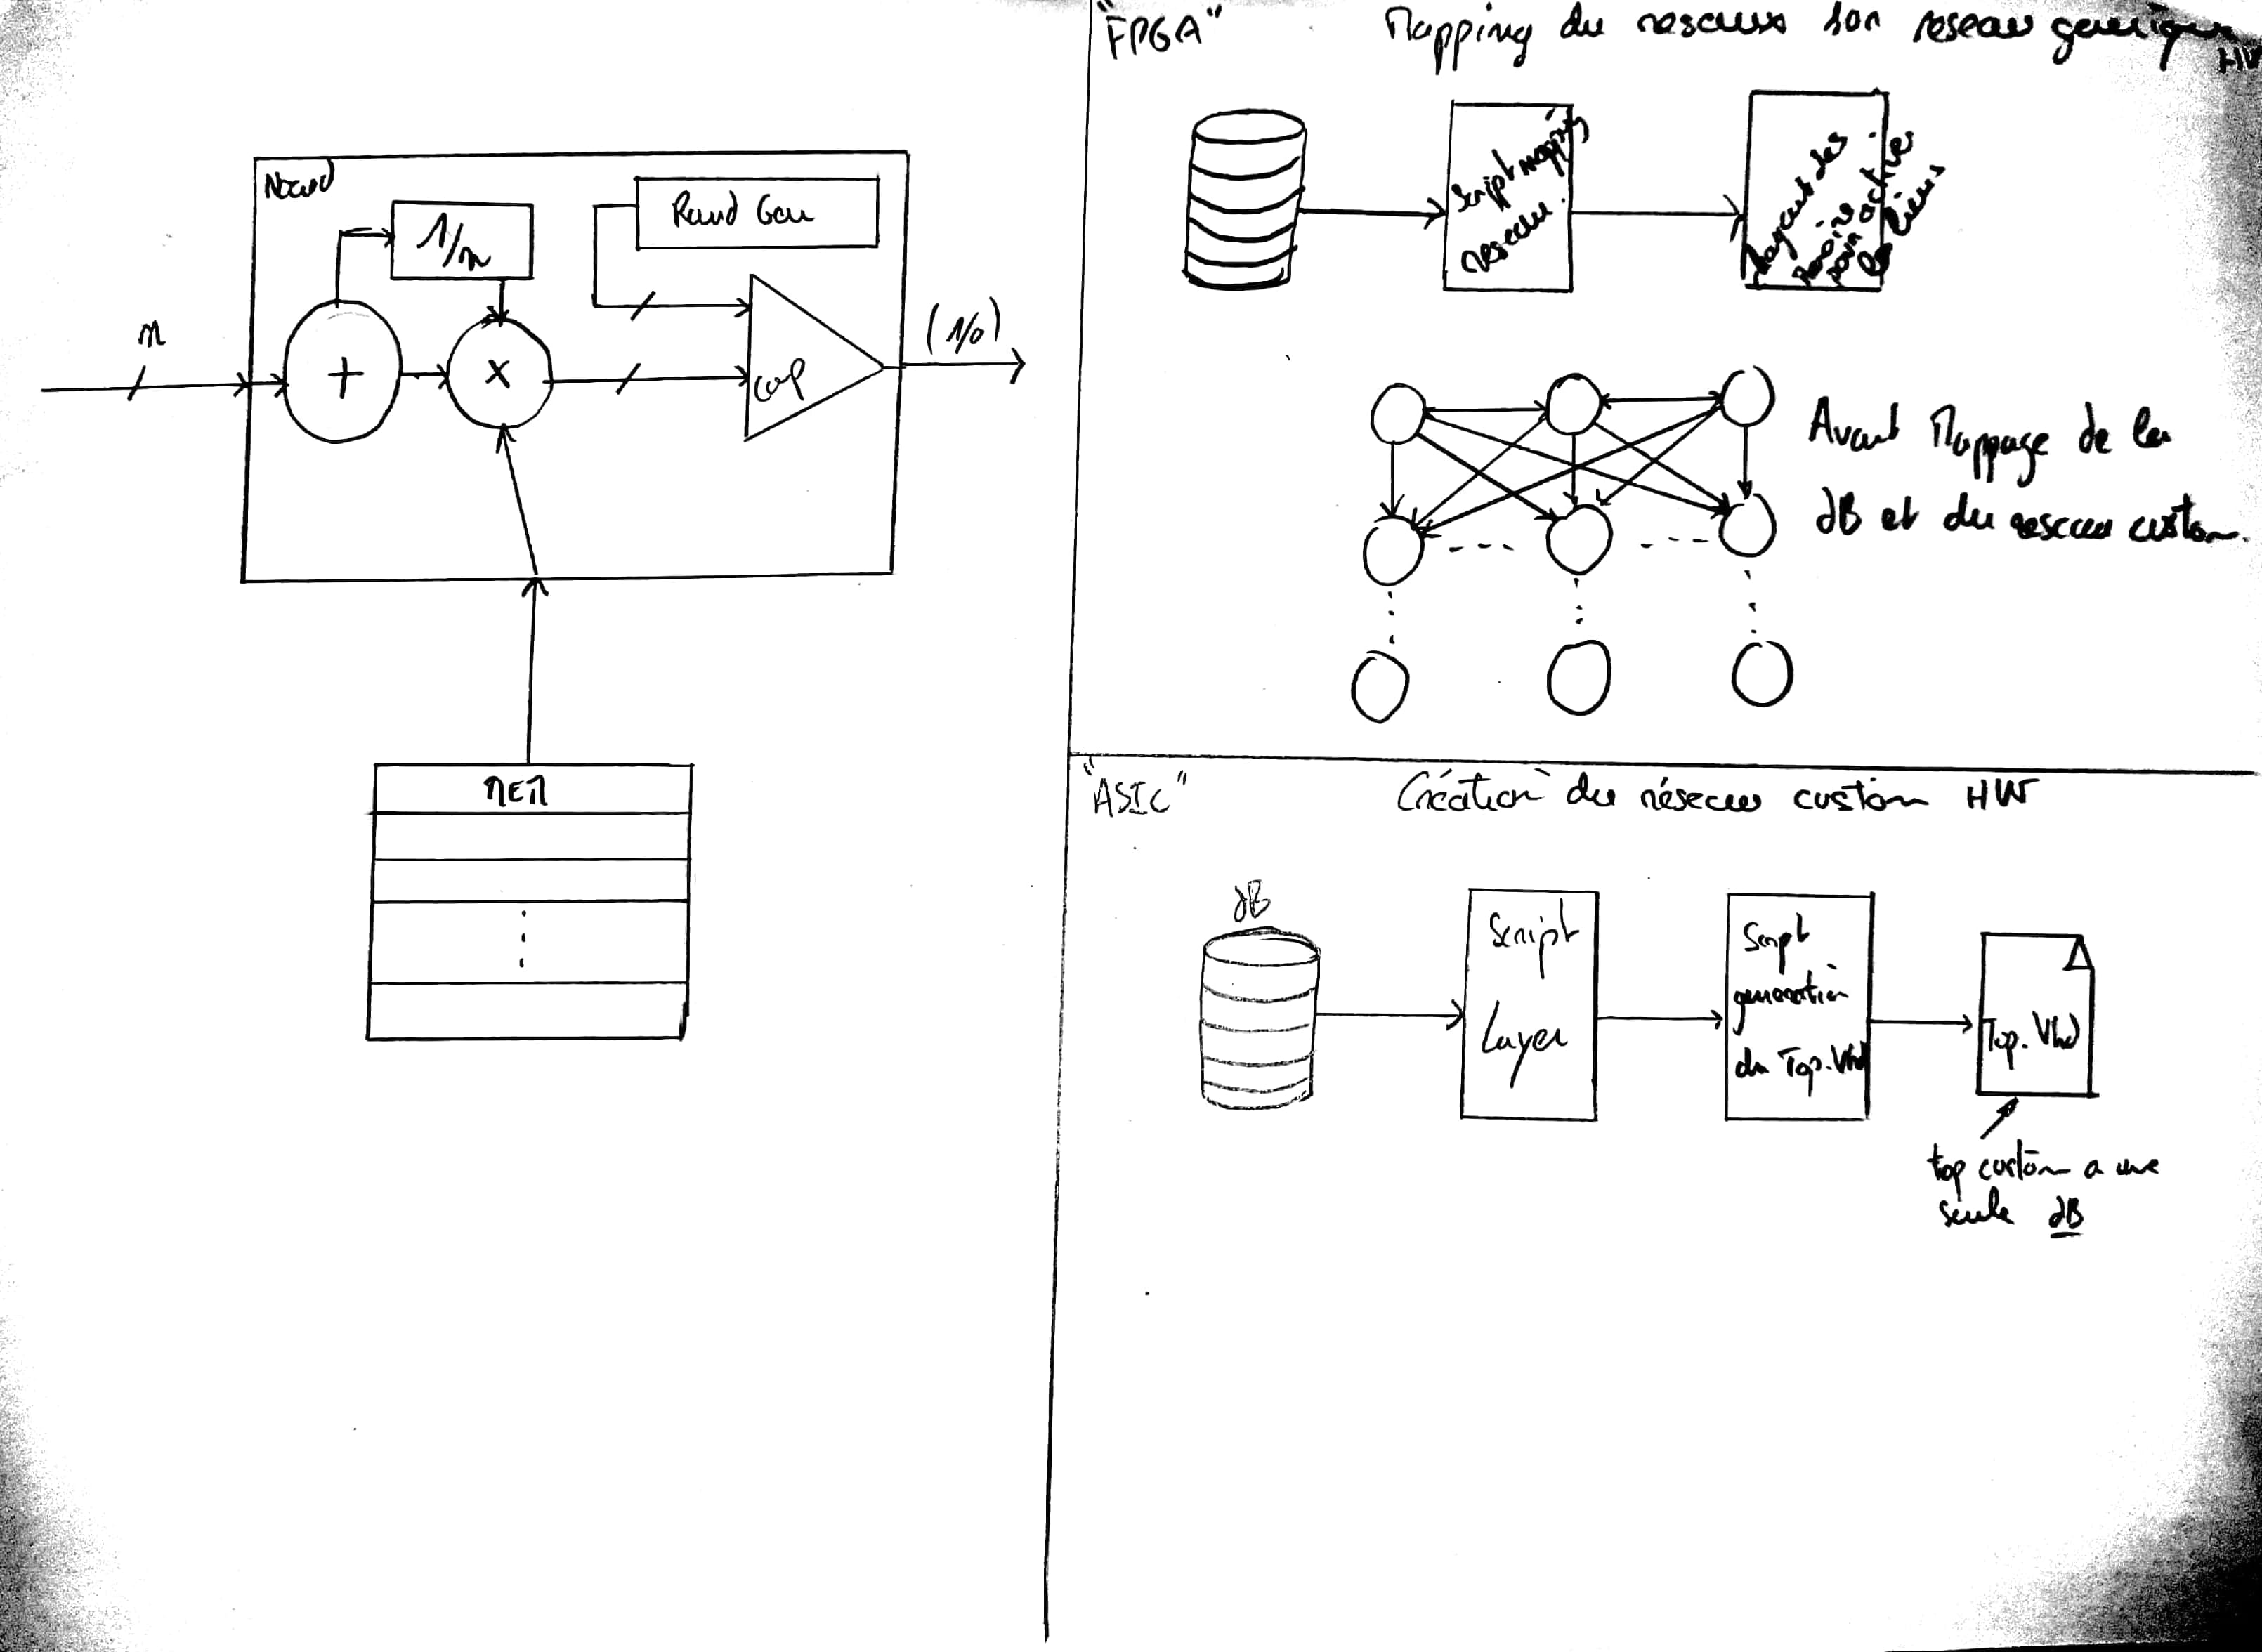 Noeud
1/n
Rand Gen
n
+
x
comp
(1/0)
MEM
"FPGA"
Mapping du reseaux sur reseau generique
HW
Script mapping
reseau.
des
liens
Avant Mappage de la
dB et du reseau custom.
"ASIC"
Création du réseau custom HW
dB
Script
Layer
Script
generation
du Top.Vhd
Top.Vhd
top custom a une
seule dB